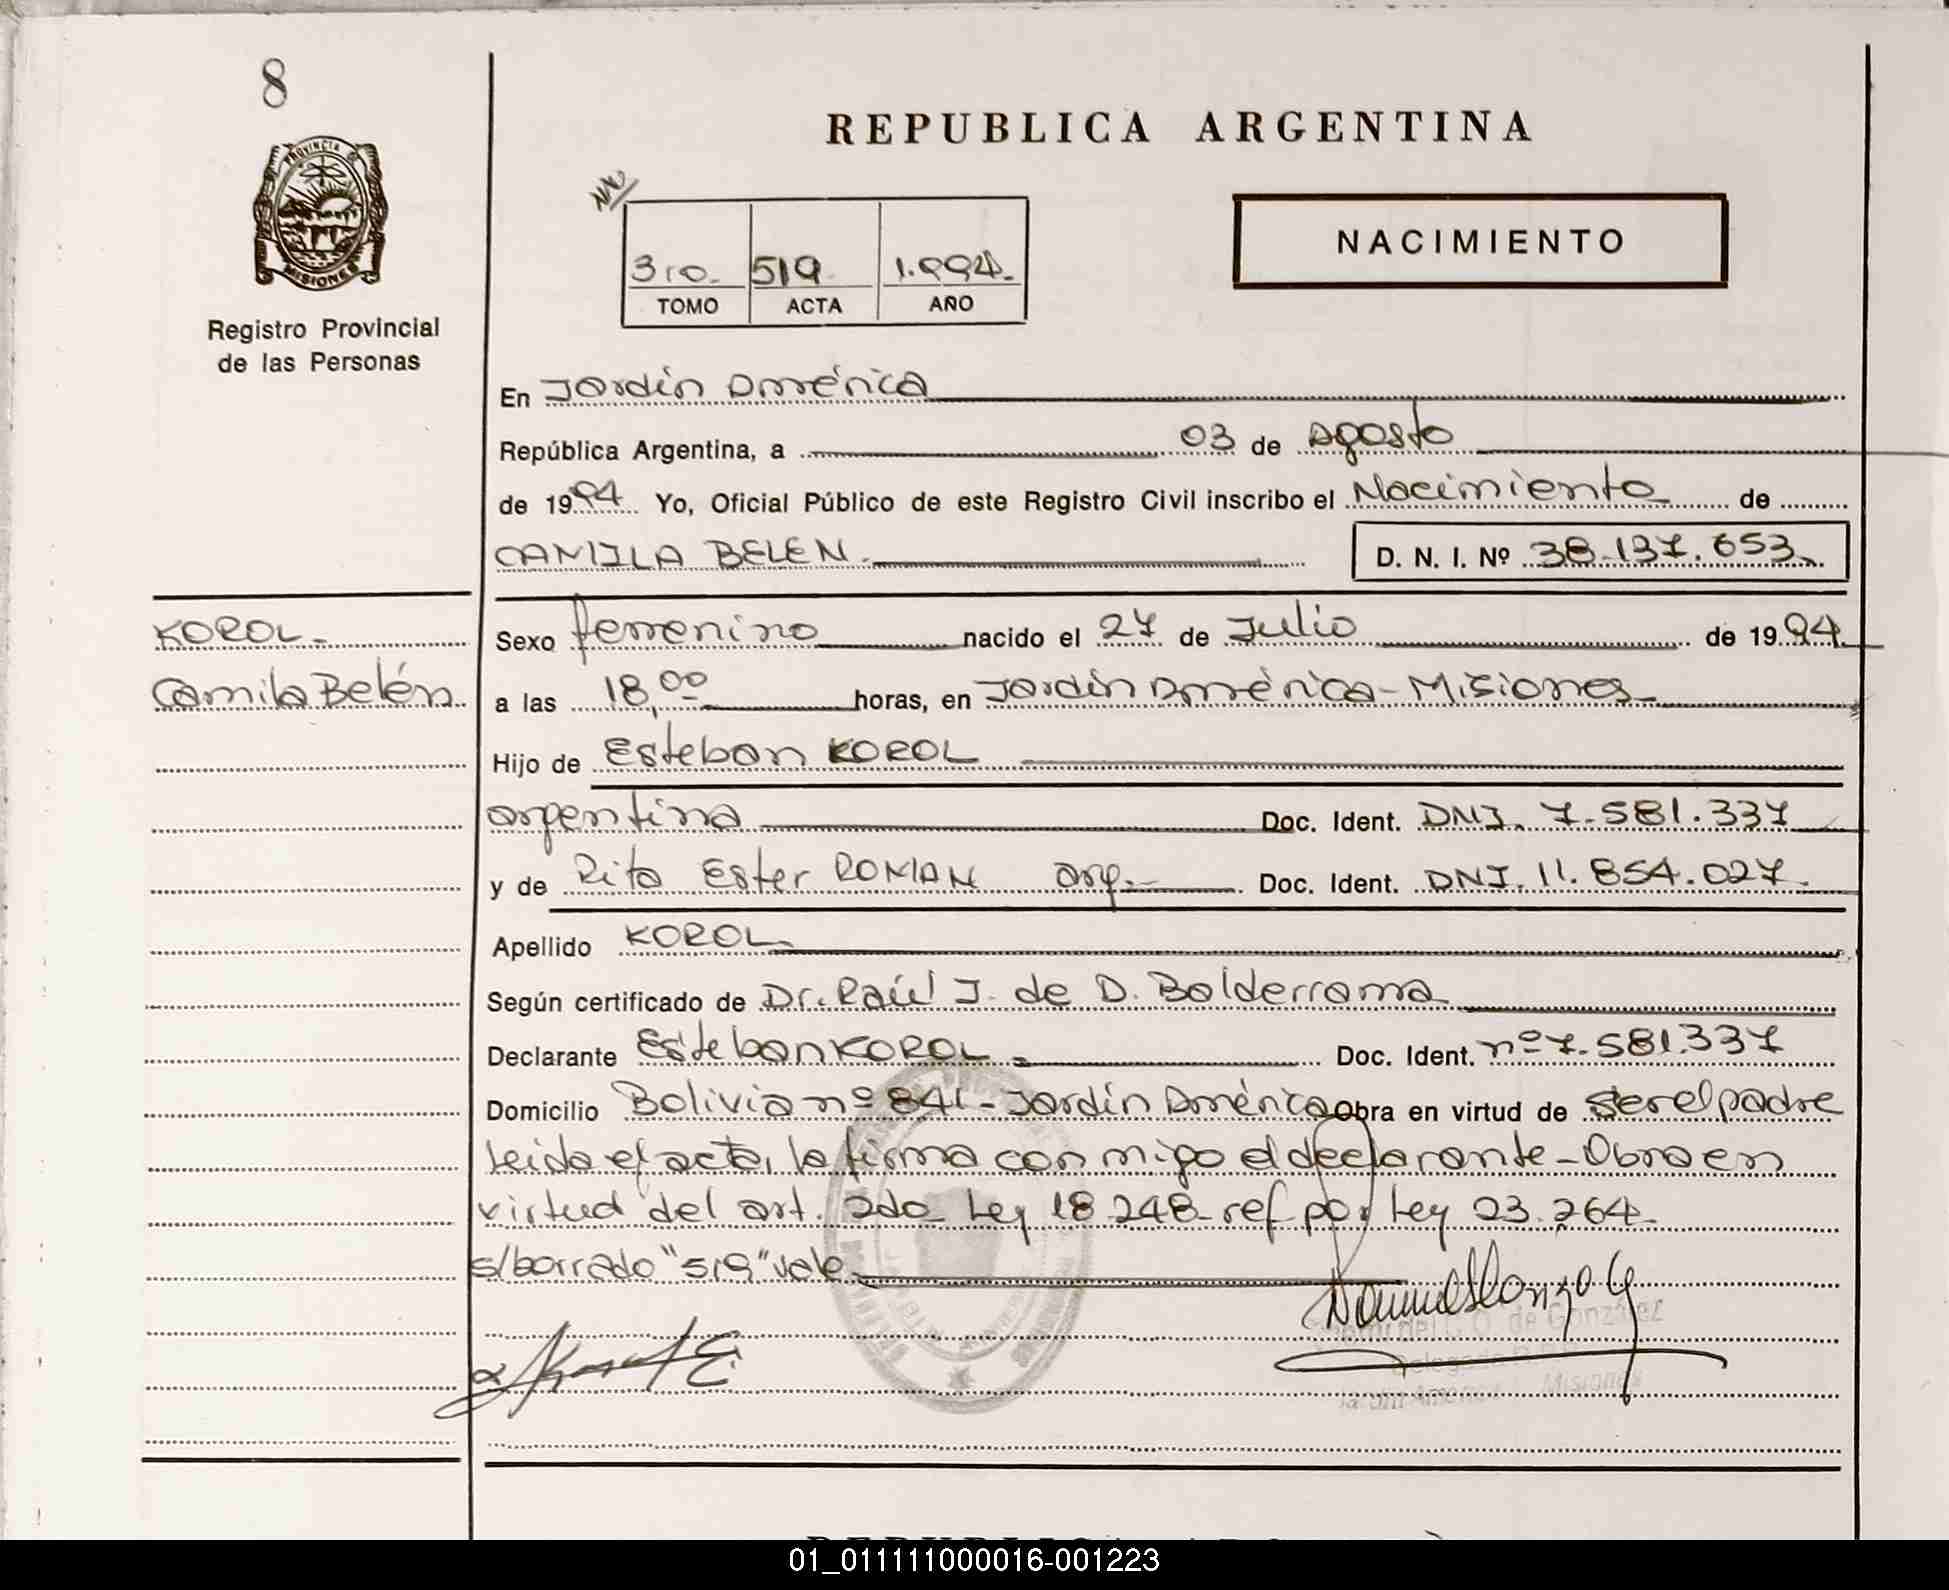 8
REPUBLICA ARGENTINA
PROVINCIA DE
MISIONES
Registro Provincial
de las Personas
NACIMIENTO
3ro. 519 1.994.
TOMO ACTA AÑO
En Jardín América
República Argentina, a 03 de Agosto
de 1994 Yo, Oficial Público de este Registro Civil inscribo el Nacimiento de
CAMILA BELEN. D. N. I. Nº 38.137.653
KOROL.
Camila Belén
Sexo femenino nacido el 27 de Julio de 1994
a las 18,00 horas, en Jardín América - Misiones
Hijo de Esteban KOROL
argentina Doc. Ident. DNI. 7.581.337
y de Rita Ester ROMAN arg. Doc. Ident. DNI. 11.854.027.
Apellido KOROL
Según certificado de Dr. Raúl J. de D. Balderrama
Declarante Esteban KOROL Doc. Ident. nº 7.581.337
Domicilio Bolivia nº 841 - Jardín América Obra en virtud de ser el padre
leida el acta, la firma con migo el declarante - Obra en
virtud del art. 2do Ley 18.248 ref por Ley 23.264.
s/borrado "519" vale
de González
Misiones
01_011111000016-001223